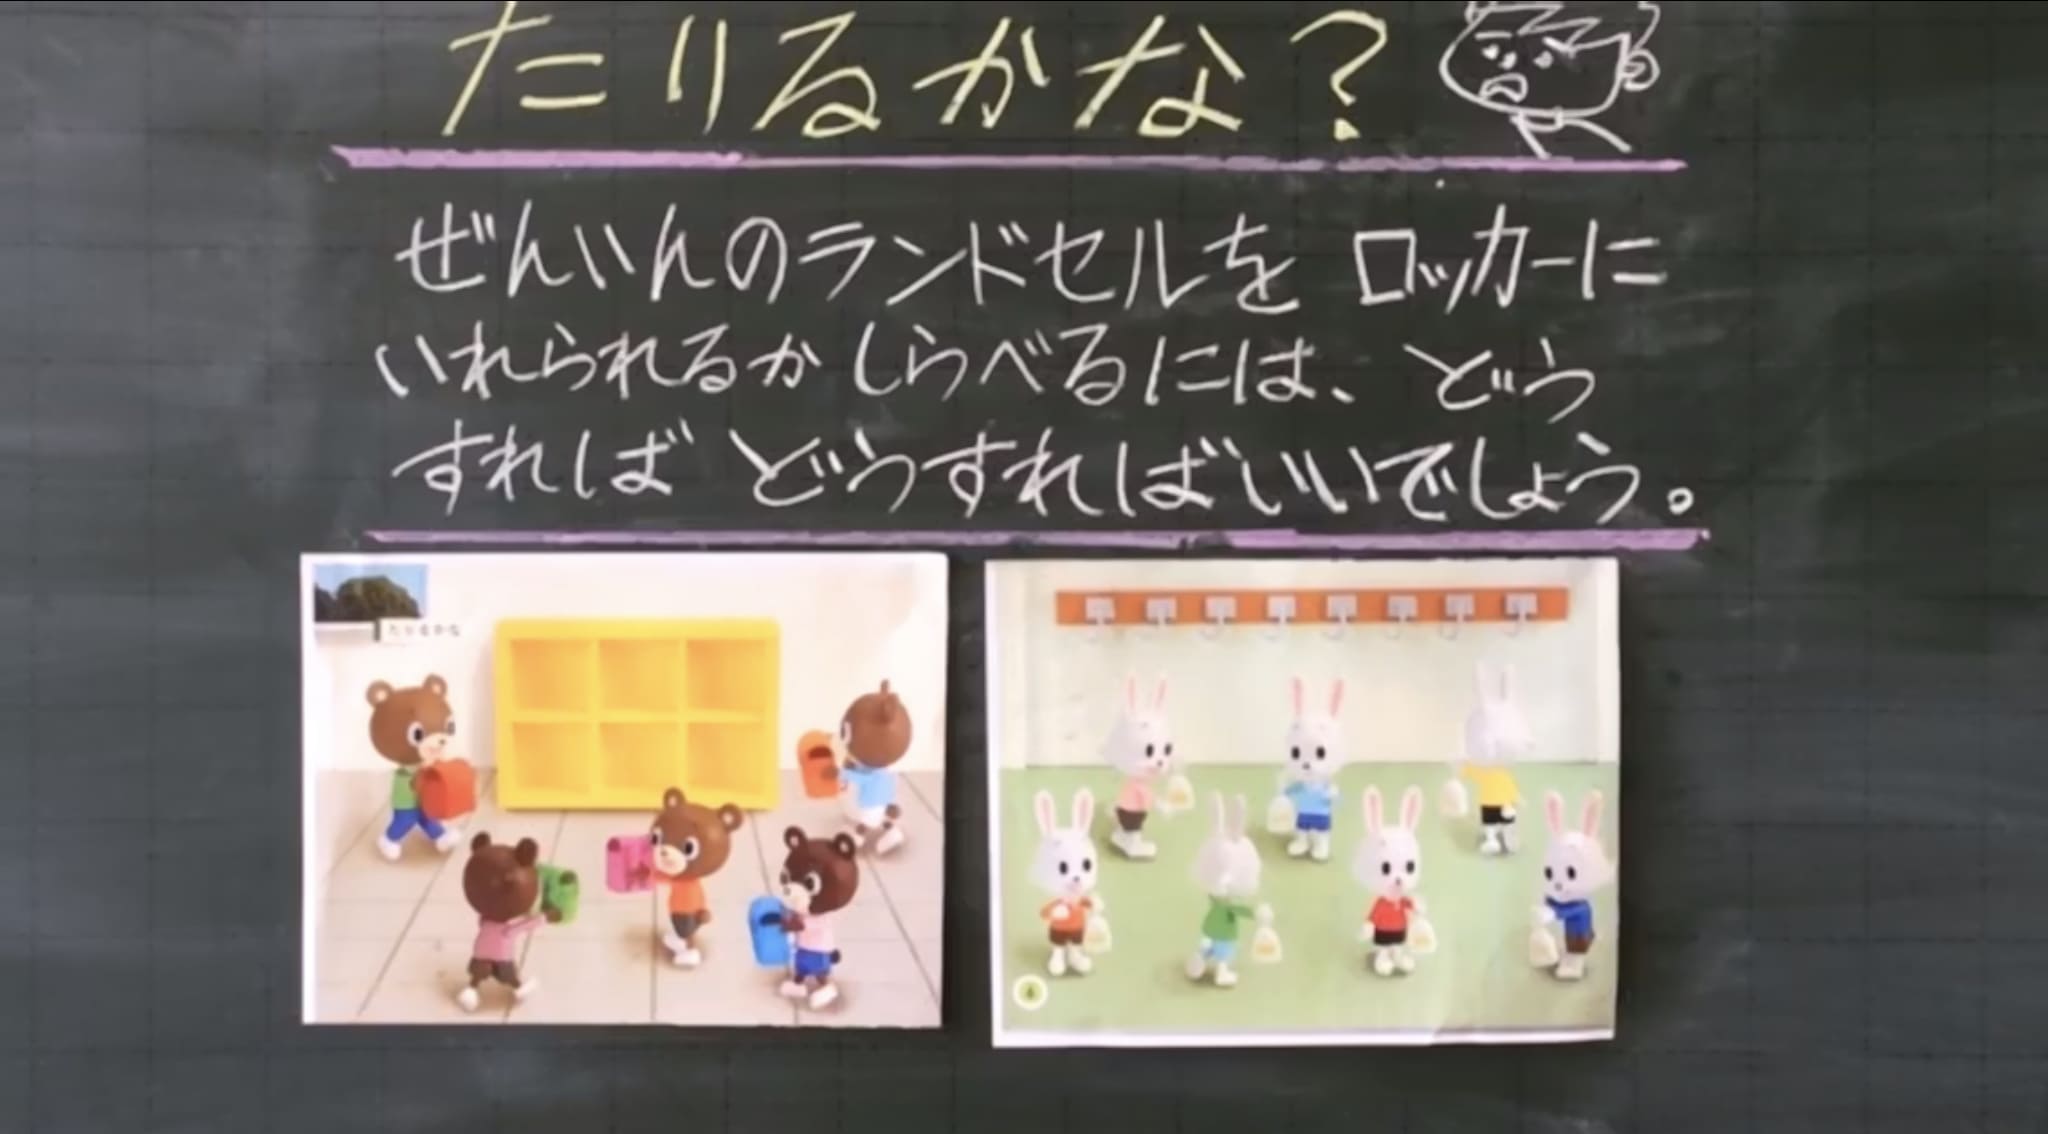 たりるかな?
ぜんいんのランドセルを ロッカーに
いれられるか しらべるには、どう
すれば どうすればいいでしょう。
たりるかな